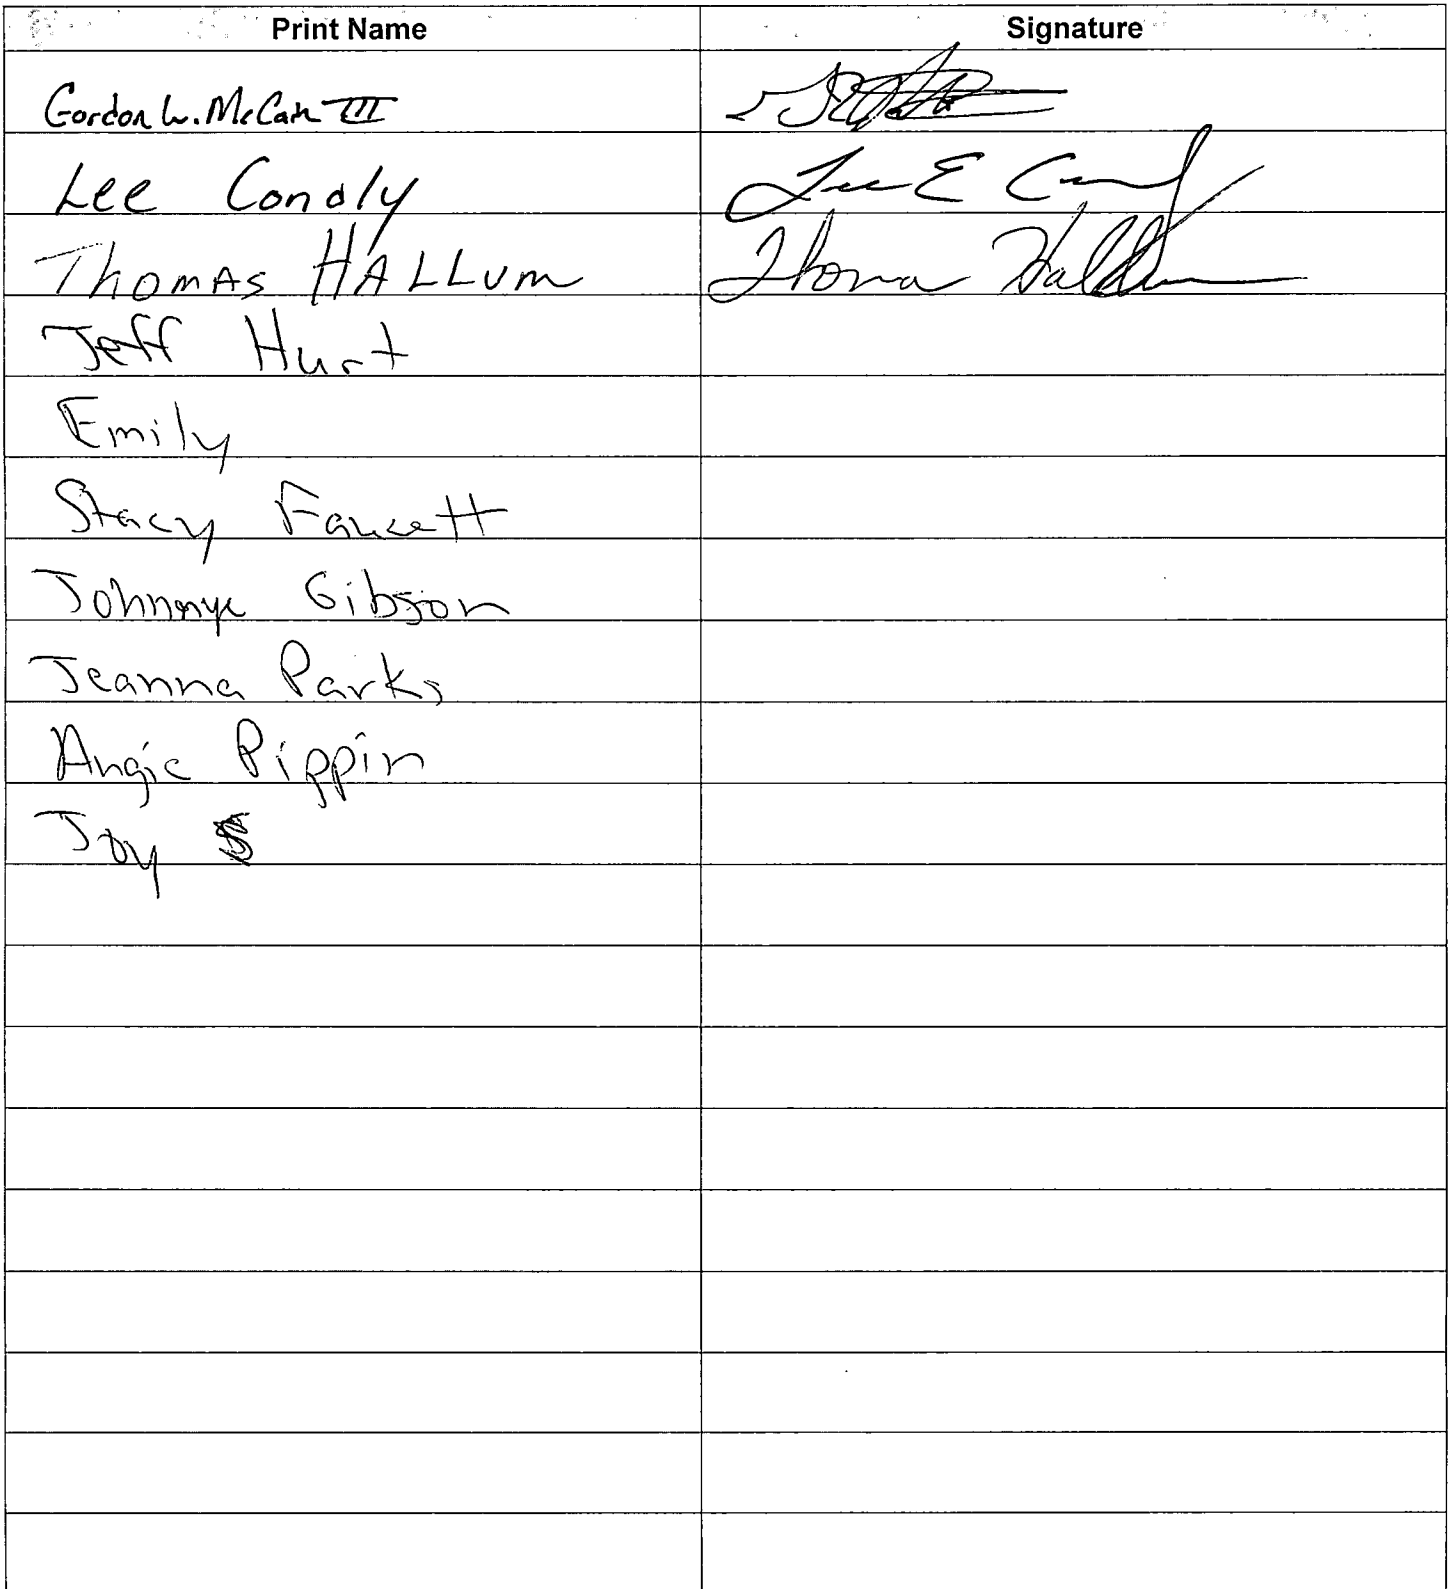 Print Name Signature
Gordon W. McCain III
Lee Condly Lee E
Thomas HALLUM Thomas Hallum
Jeff Hurt
Emily
Stacy Faucett
Johnnye Gibson
Jeanna Parks
Angie Pippin
Joy S